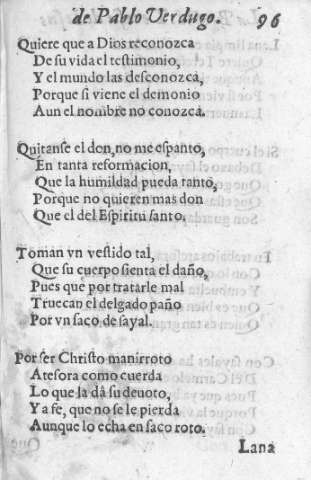 de Pablo Verdugo. 96
Quiere que a Dios reconozca
De su vida el testimonio,
Y el mundo las desconozca,
Porque si viene el demonio
Aun el nombre no conozca.
Quitanse el don, no me espanto,
En tanta reformacion,
Que la humildad pueda tanto,
Porque no quieren mas don
Que el del Espiritu santo.
Toman vn vestido tal,
Que su cuerpo sienta el daño,
Pues que por tratarle mal
Truecan el delgado paño
Por vn saco de sayal.
Por ser Christo manirroto
Atesora como cuerda
Lo que la dà su deuoto,
Y a fe, que no se le pierda
Aunque lo echa en saco roto.
Lana